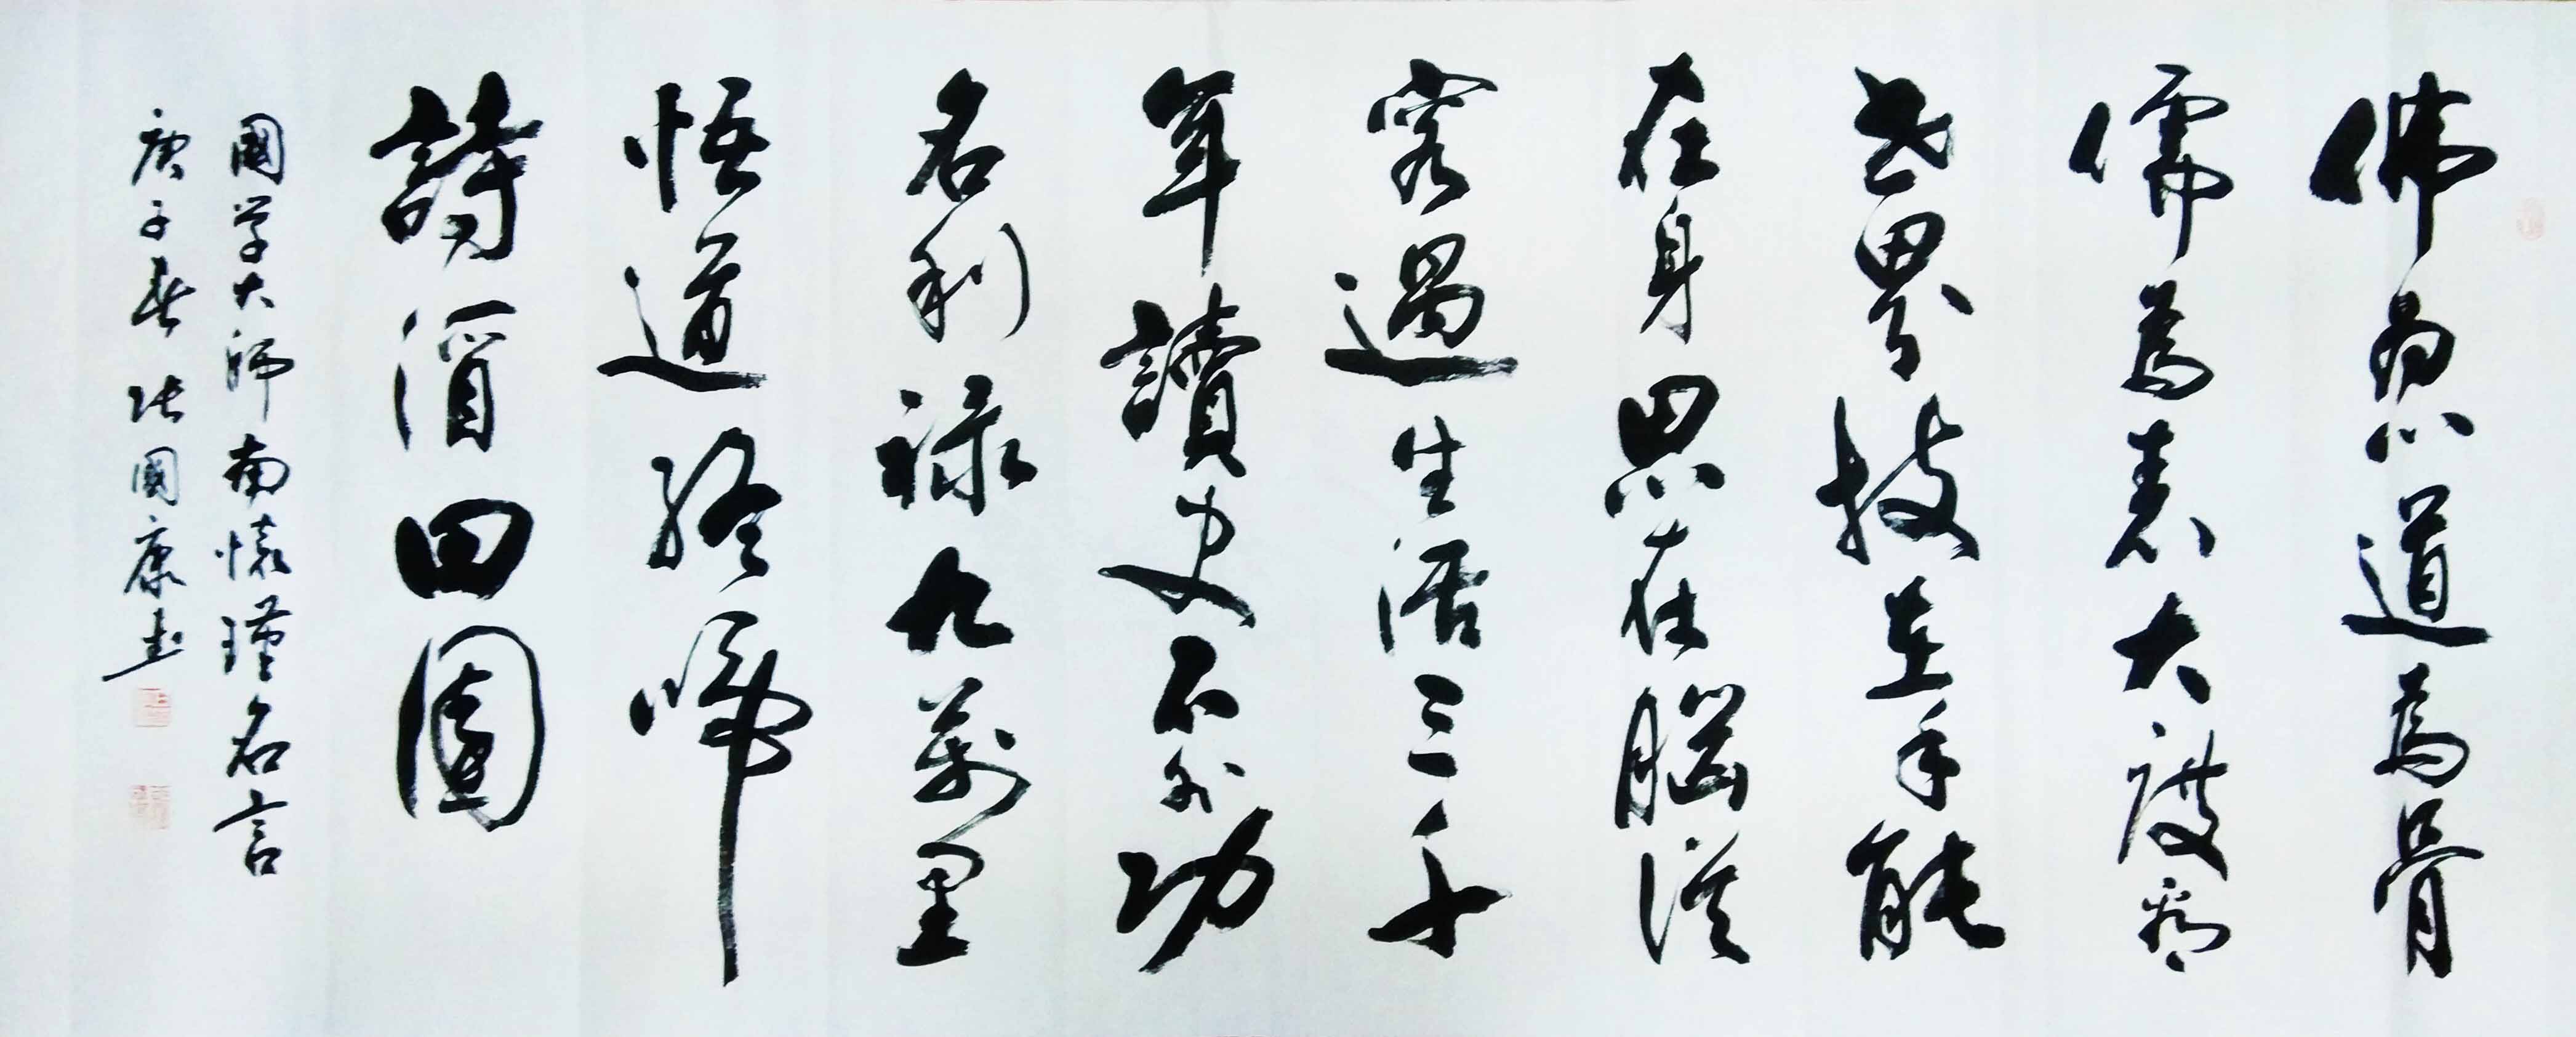 佛為心道為骨
儒為表大度看
世界技在手能
在身思在腦從
容過生活三千
年讀史不外功
名利祿九萬里
悟道終歸
詩酒田園
國学大師南懷瑾名言
庚子春 张國康書